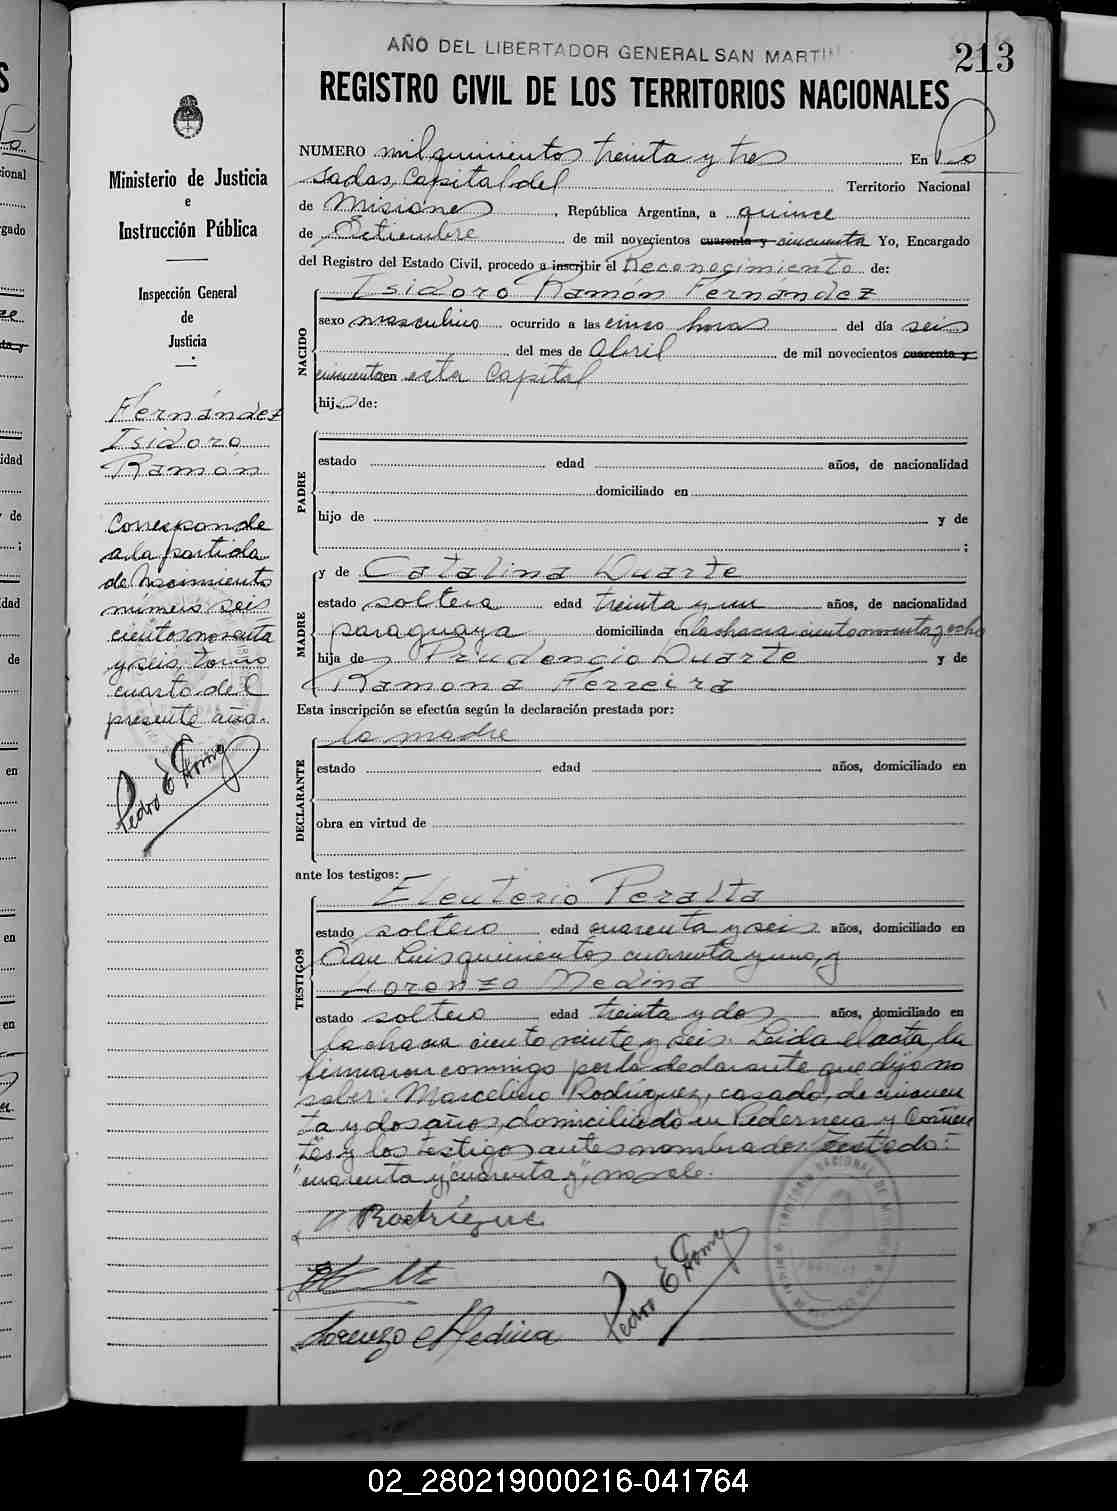 AÑO DEL LIBERTADOR GENERAL SAN MARTIN
213
REGISTRO CIVIL DE LOS TERRITORIOS NACIONALES
Ministerio de Justicia
e
Instrucción Pública
Inspección General
de
Justicia
Fernández
Isidoro
Ramón
Corresponde
a la partida
de Nacimiento
número seis
cientos noventa
y seis, tomo
cuarto del
presente año.
NUMERO mil quinientos treinta y tres En Po
sadas, Capital del Territorio Nacional
de Misiones, República Argentina, a quince
de Setiembre de mil novecientos cuarenta y cincuenta Yo, Encargado
del Registro del Estado Civil, procedo a inscribir el Reconocimiento de:
NACIDO
Isidoro Ramón Fernández
sexo masculino ocurrido a las cinco horas del día seis
del mes de Abril de mil novecientos cuarenta y
cincuenta en esta Capital
hijo de:
PADRE
estado edad años, de nacionalidad
domiciliado en
hijo de y de
;
MADRE
y de Catalina Duarte
estado soltera edad treinta y un años, de nacionalidad
paraguaya domiciliada en la chacra ciento noventa y ocho
hija de Prudencio Duarte y de
Ramona Ferreira
Esta inscripción se efectúa según la declaración prestada por:
DECLARANTE
la madre
estado edad años, domiciliado en
obra en virtud de
ante los testigos:
TESTIGOS
Eleuterio Peralta
estado soltero edad cuarenta y seis años, domiciliado en
San Luis quinientos cuarenta y uno, y
Lorenzo Medina
estado soltero edad treinta y dos años, domiciliado en
la chacra ciento veinte y seis. Leida el acta, la
firmaron conmigo por la declarante que dijo no
saber. Marcelino Rodríguez, casado, de cincuen
ta y dos años, domiciliado en Pedernera y Corrien
tes y los testigos antes nombrados. Testado:
"cuarenta y", "cuarenta y", no vale.
Rodríguez
Lorenzo Medina
02_280219000216-041764